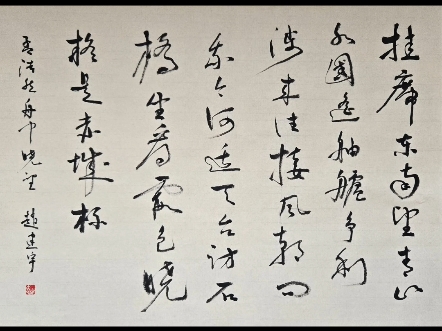 挂席东南望青山
水國遥舳艫争利
涉来往接风潮问
我今何适天台访石
桥坐看霞色晓
疑是赤城标
孟浩然舟中晓望 趙建宇